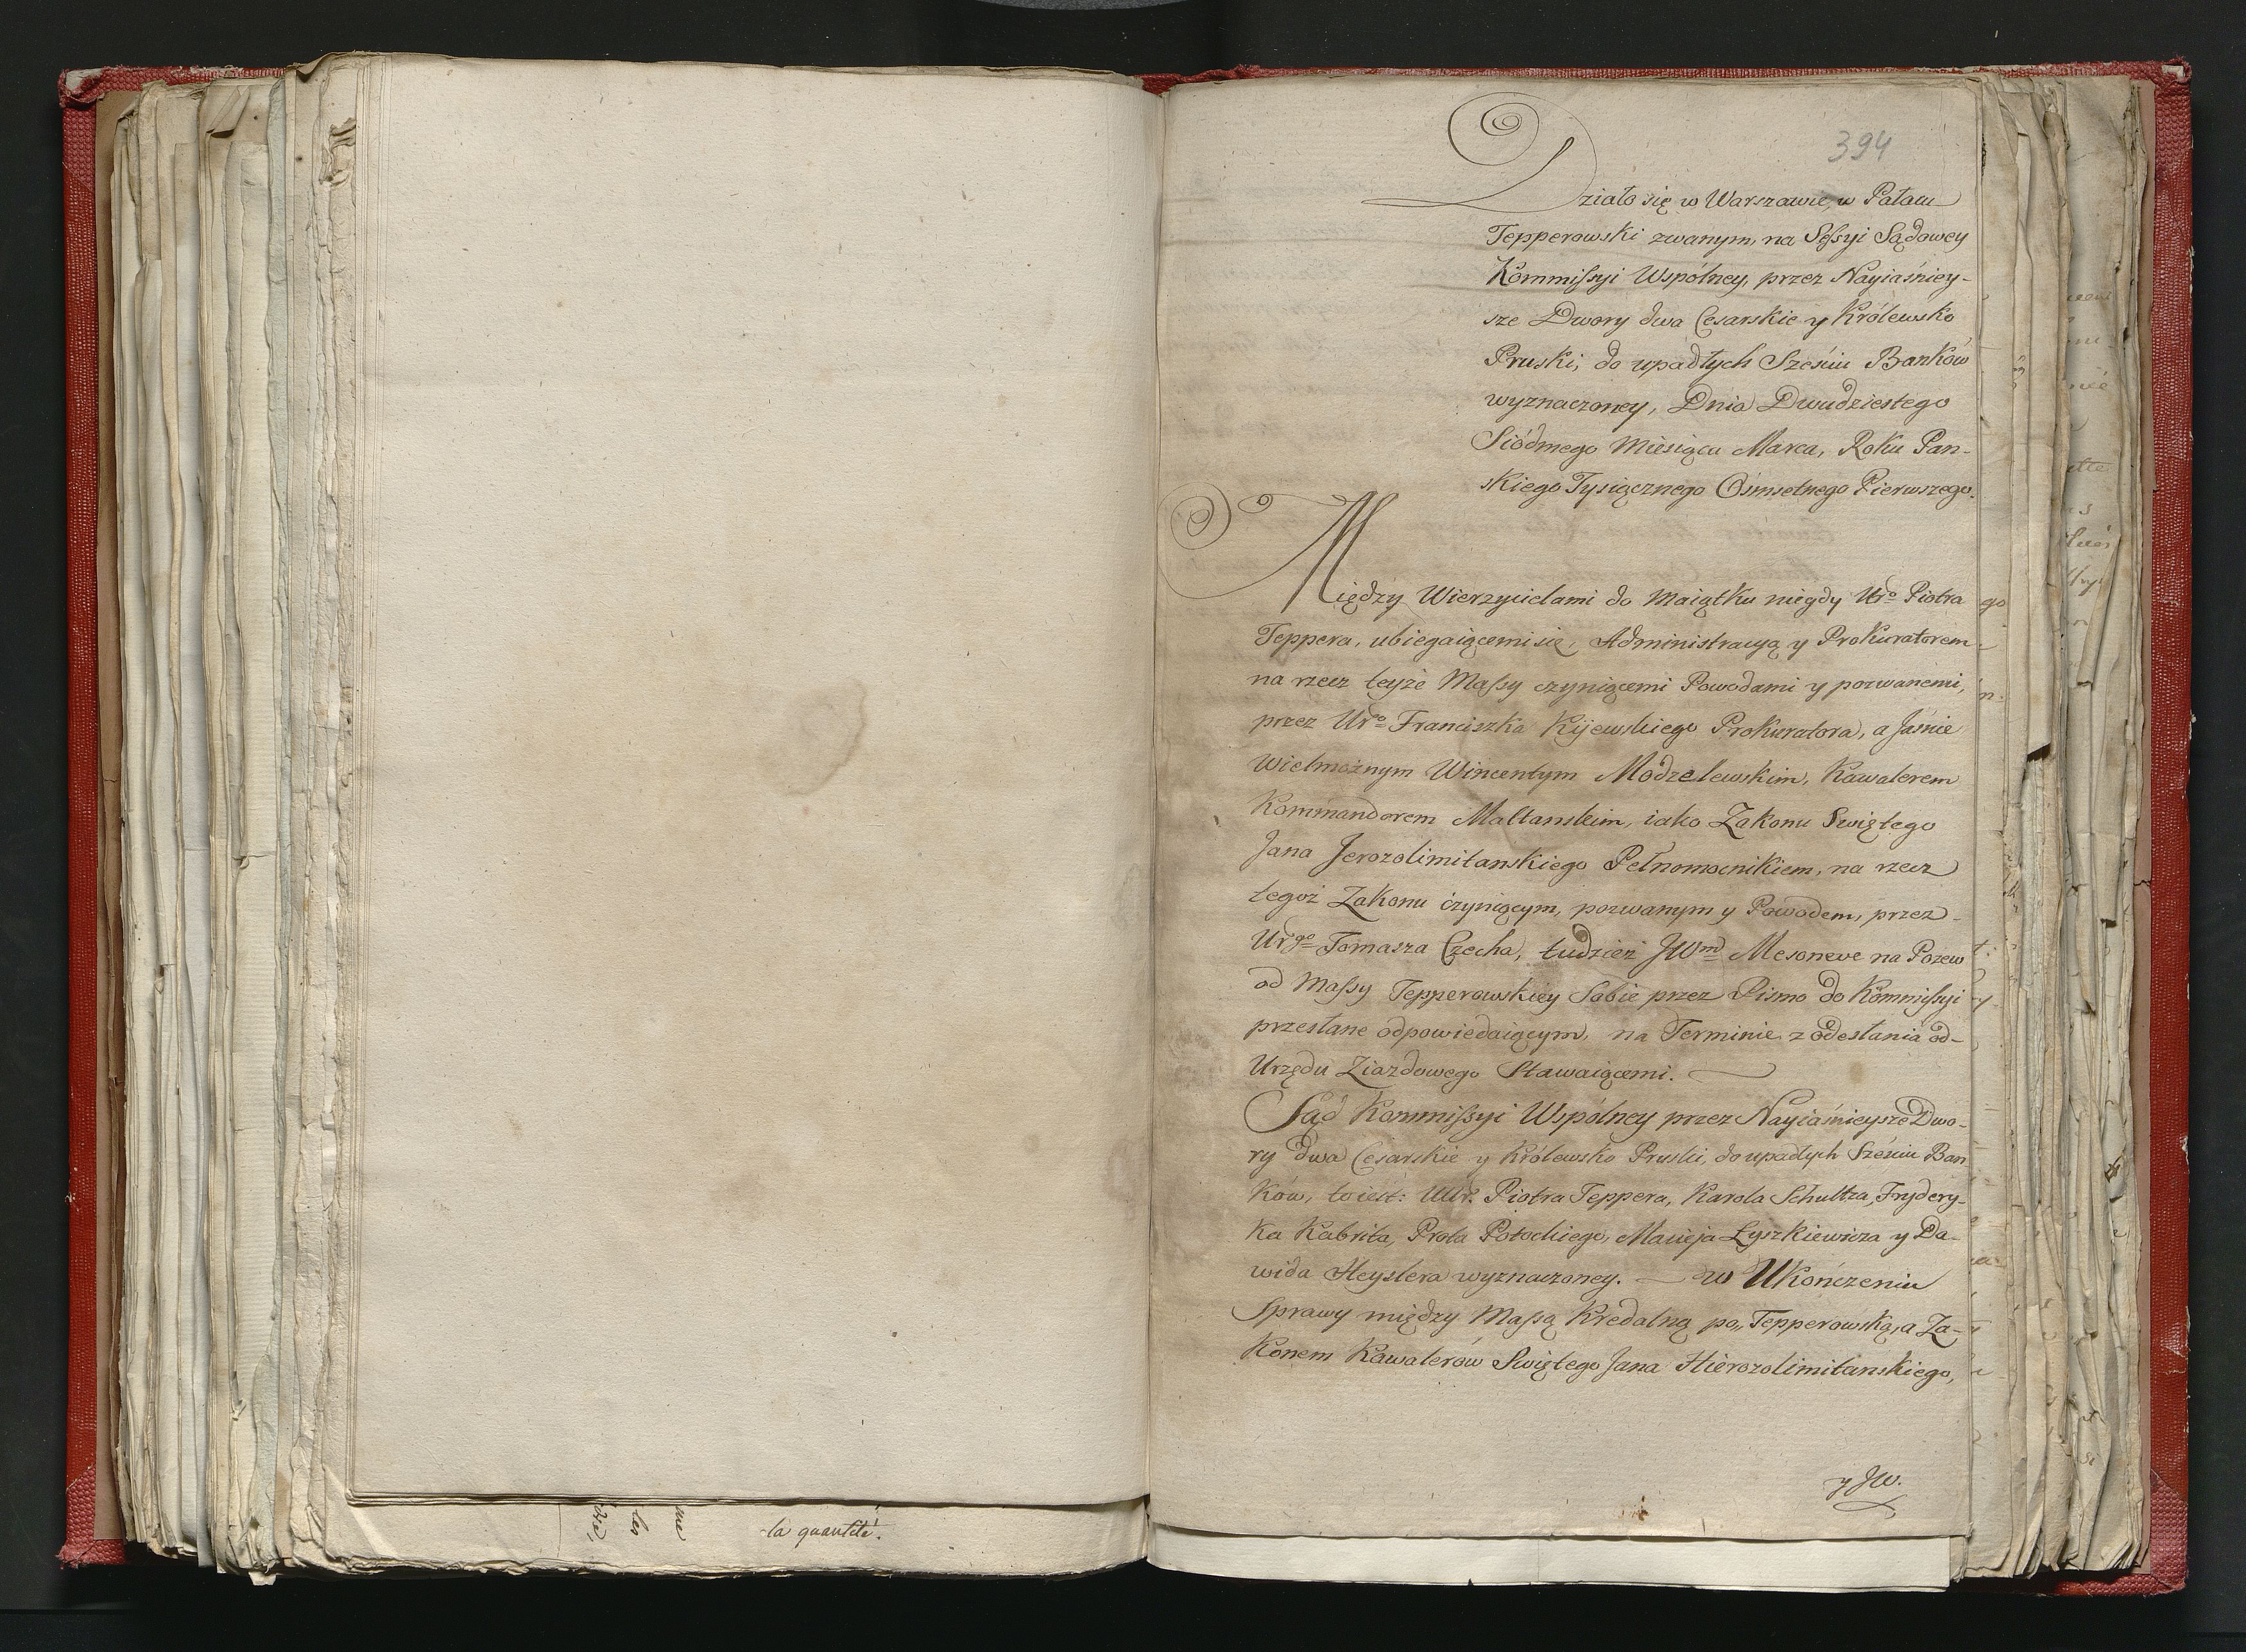 394
Działo się w Warszawie, w Pałacu
Tepperowski zwanym, na Sessyi Sądowey
Kommissyi Wspólney, przez Nayiaśniey-
sze Dwory dwa Cesarskie y Królewsko
Pruski, do upadłych Sześciu Banków
wyznaczoney, Dnia Dwudziestego
Siódmego Miesiąca Marca, Roku Pan-
skiego Tysiącznego Ośmsetnego Pierwszego.
Między Wierzycielami do Maiątku niegdy Uro Piotra
Teppera, ubiegaiącemi się, Administracyą y Prokuratorem
na rzecz teyże Massy czyniącemi Powodami y pozwanemi,
przez Uro Franciszka Kijewskiego Prokuratora, a Jaśnie
Wielmożnym Wincentym Modzelewskim, Kawalerem
Kommandorem Maltanskim, iako Zakonu Swiętego
Jana Jerozolimitanskiego Pełnomocnikiem, na rzecz
tegoż Zakonu czyniącym, pozwanym y Powodem, przez
Urgo Tomasza Czecha, tudzież JWm Mesoneve na Pozew
od Massy Tepperowskiey Sobie przez Pismo do Kommissyi
przesłane odpowiedaiącym, na Terminie z odesłania od-
Urzędu Ziazdowego Stawaiącemi.
Sąd Kommissyi Wspólney przez Nayiaśnieysze Dwo-
ry dwa Cesarskie y Królewsko Pruski, do upadłych Sześciu Ban
ków, to iest: UUr. Piotra Teppera, Karola Schultza, Frydery-
ka Kabrita, Prota Potockiego, Macieja Łyszkiewicza y Da-
wida Heyslera wyznaczoney. — w Ukończeniu
Sprawy między Massą Kredalną po„ Tepperowską, a Za-
konem Kawalerów Swiętego Jana Hierozolimitanskiego,
y JW.
la quantité.
me
les